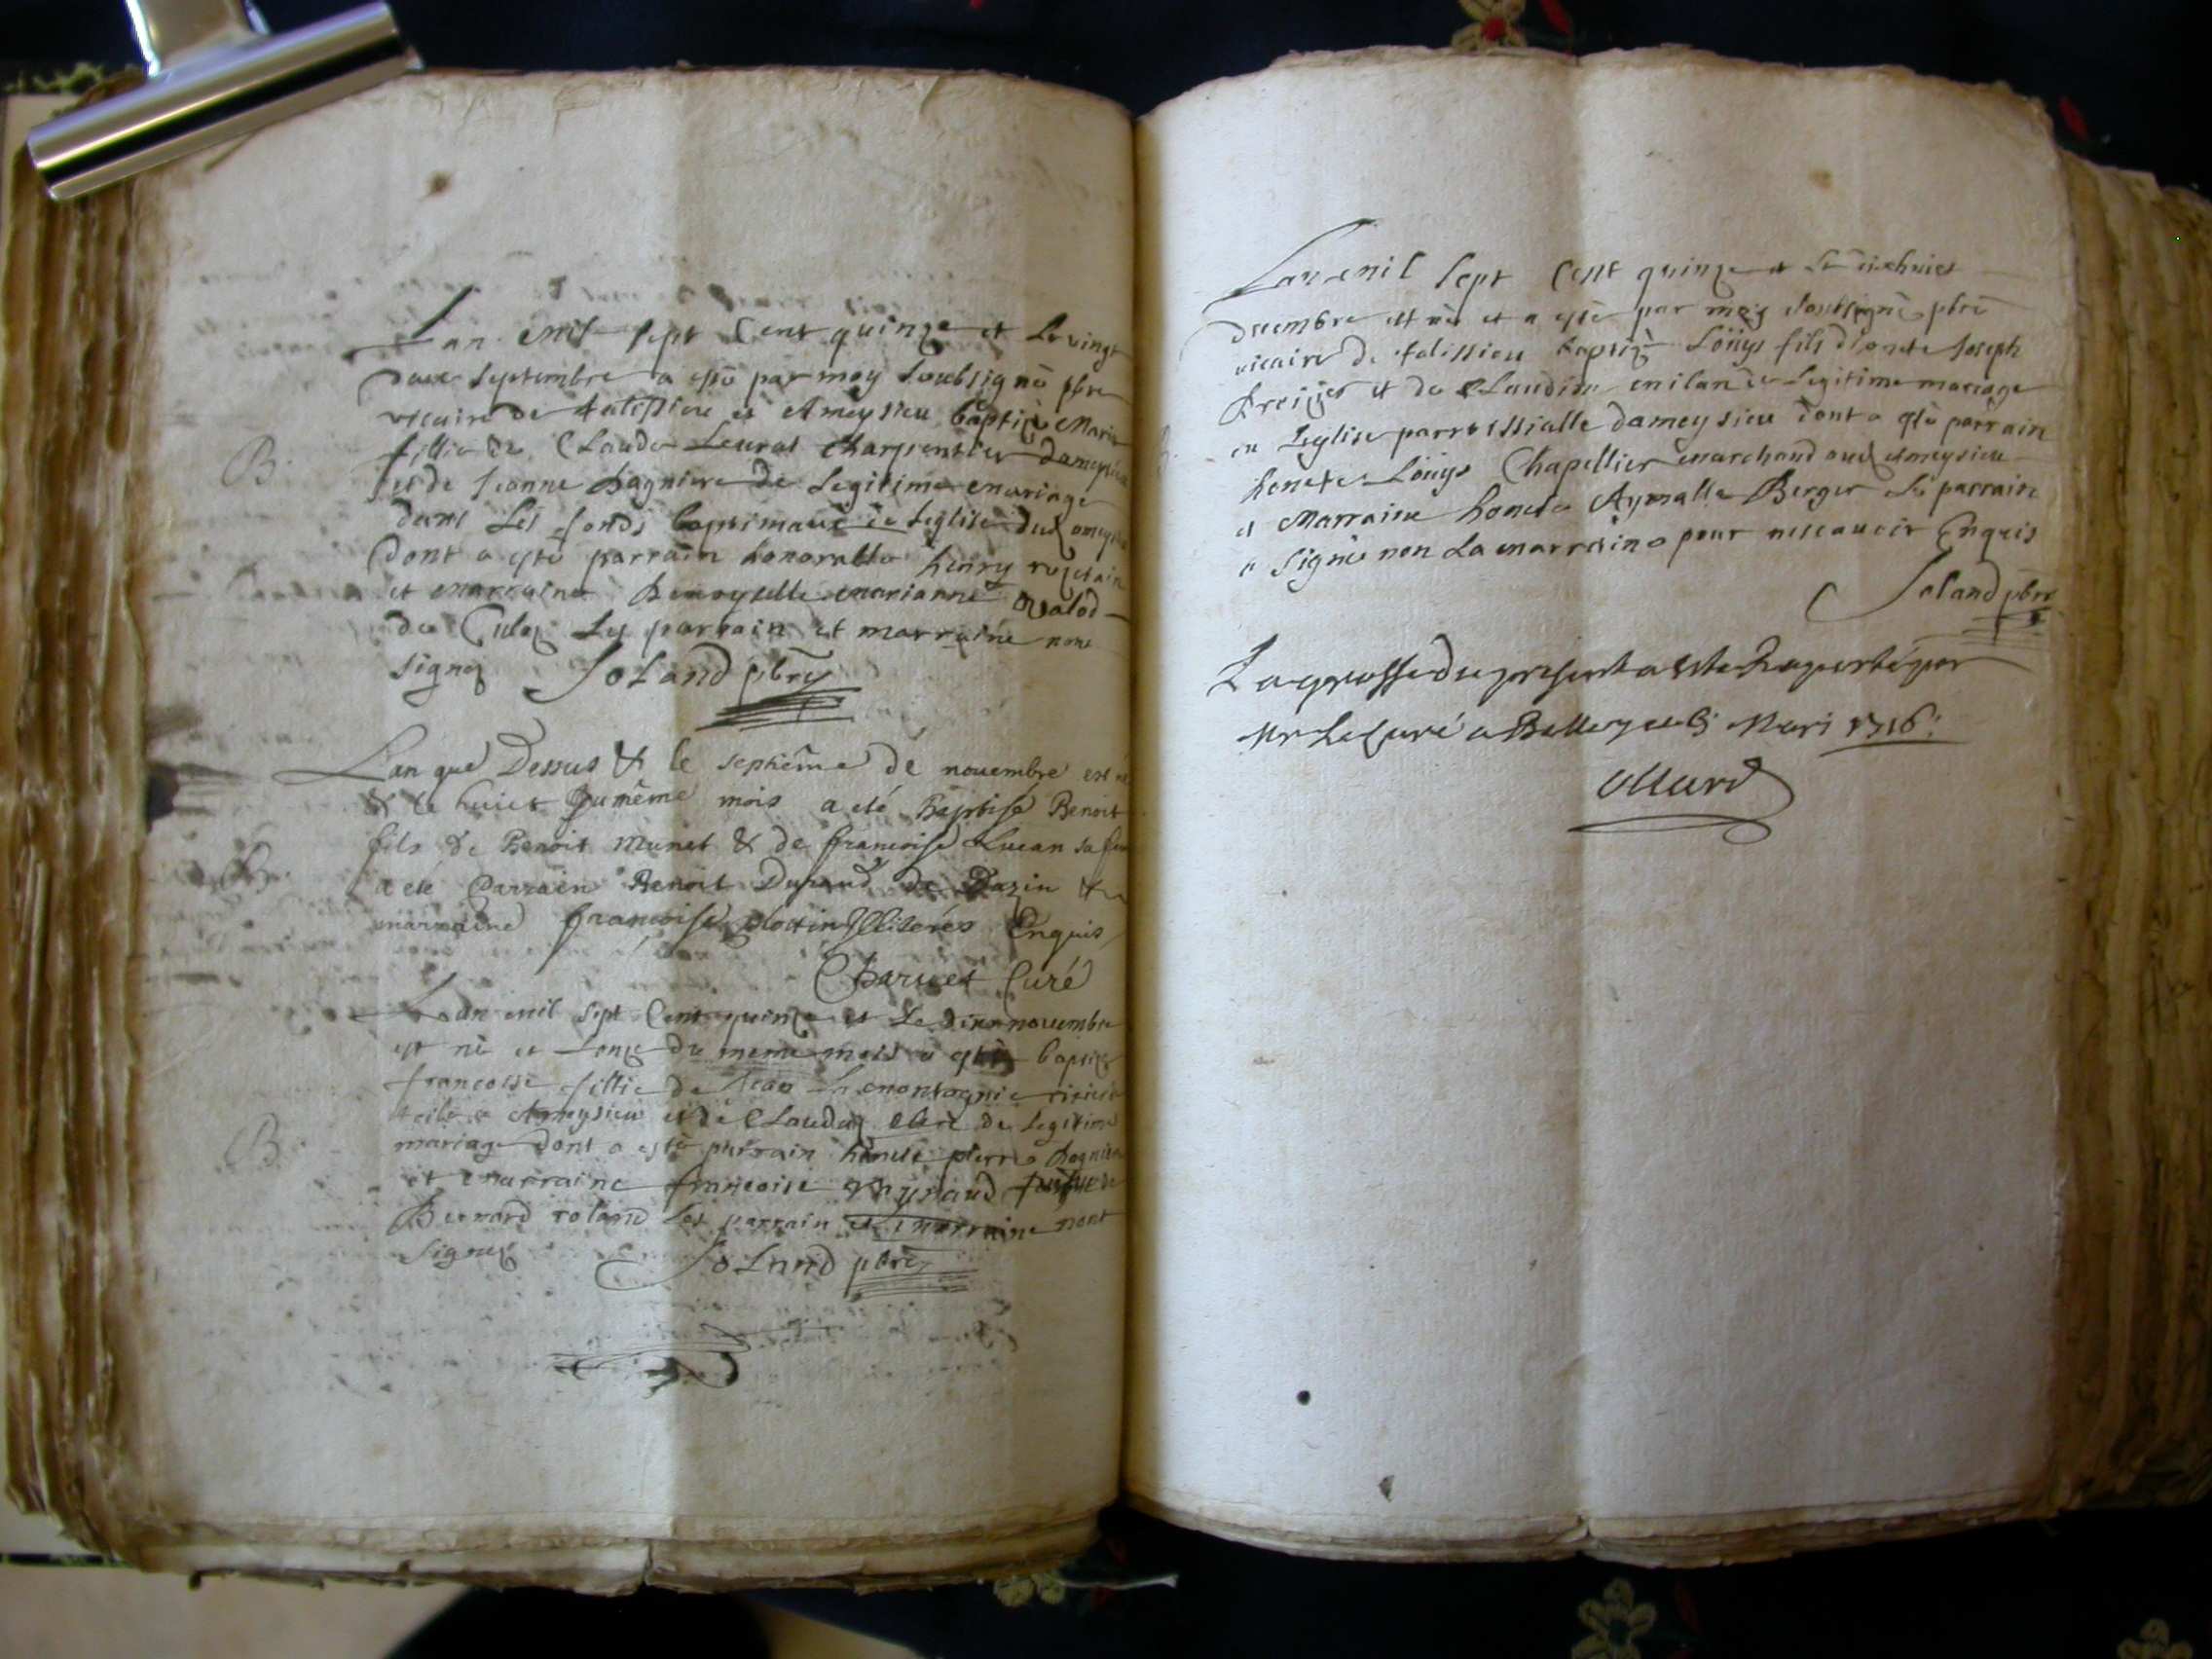 Lan mil sept Cent quinze et Le vingt
deux septembre a esté par moy soubsigné pbre
vicaire de talissieu et Ameysieu baptizé Marie
fillie de Claude Leurat Charpentier dameysieu
et de Jeanne de Legitime mariage
dans Les fonds baptimaux de Leglise dud
dont a esté parrain honorable henry
et marraine Demoyselle marianne
de Culoz Les parrain et marraine nont
signez Joland pbre
B.
Lan que Dessus & le septiême de novembre est né
& le huict du même mois a eté Baptisé Benoit
fils de Benoit Munet & de francoise Lucan sa
a eté Parrain Benoit Durand de Dazin &
marraine francoise Illiterés Enquis
B.
Charvet Curé
Lan mil sept Cent quinze et Le dix novembre
est né et Lonze du meme mois a esté baptizé
francoise fillie de Jean La montagnie
Ameysieu et de Claudaz de Legitime
mariage dont a esté parrain honete pierre
et marraine francoise Reynaud
Bernard roland Les parrain et marraine nont
signez Joland pbre
B.
Lan mil sept Cent quinze et Le
decembre est né et a esté par moy soubsigné pbre
vicaire de talissieu baptizé Loüys fils dhonete Joseph
et de Claudine de Legitime mariage
en Leglise parrossialle dameysieu dont a esté parrain
honete Loüys Chapellier marchand aud Ameysieu
et Marraine honete Aymalle Berger Le parrain
a signé non La marraine pour ne scavoir Enquis
Joland pbre
La grosse du present a este Raporté par
Mr Le Curé a Belley Mars 1716.